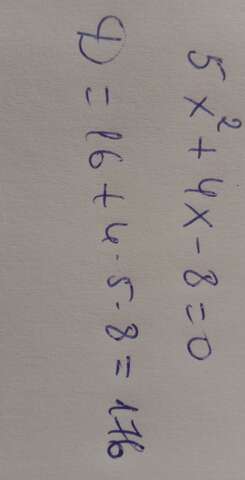 5x² + 4x - 8 = 0
D = 16 + 4 · 5 · 8 = 176